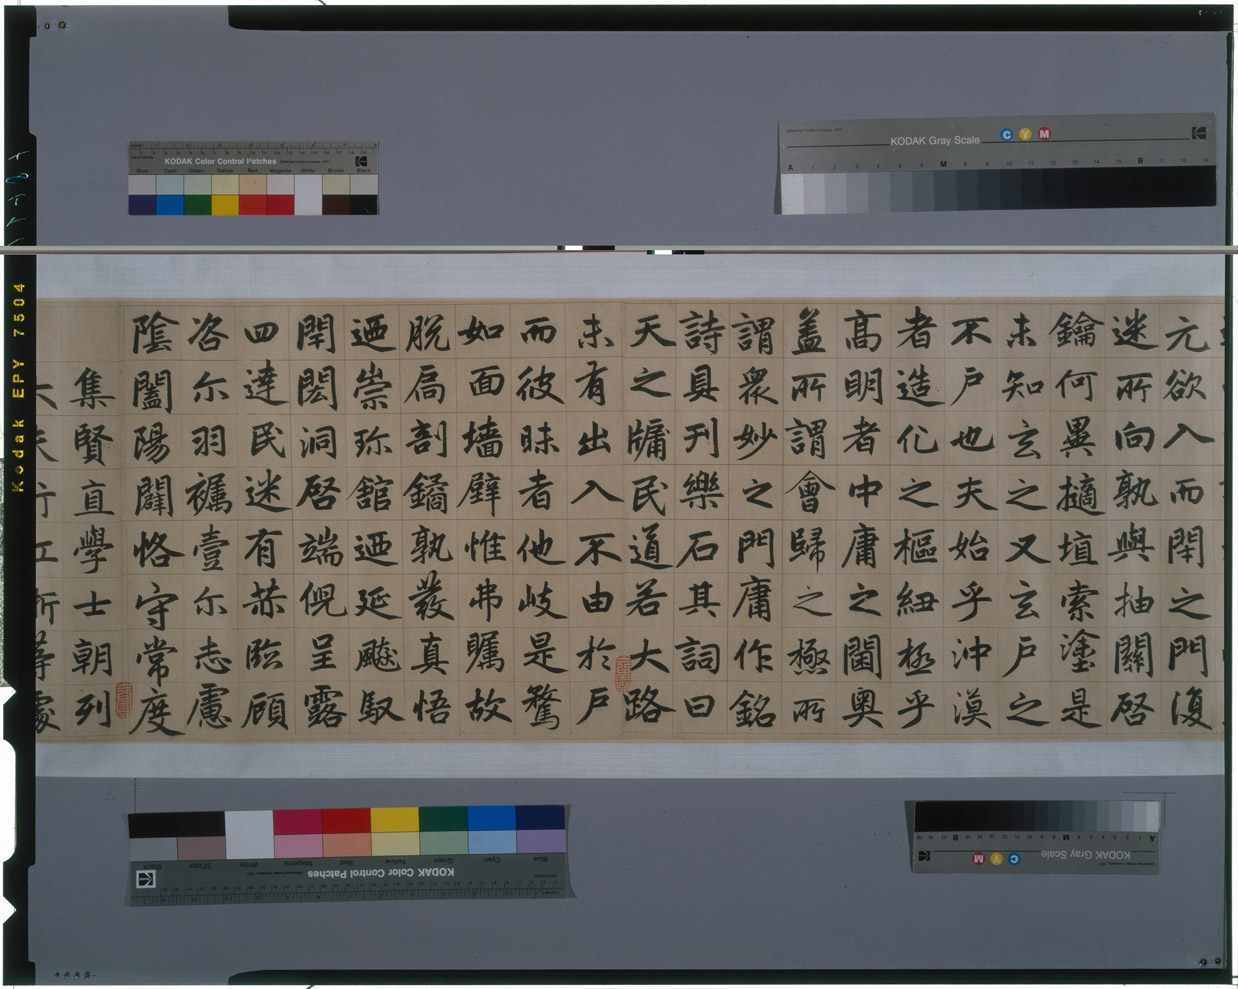 元欲入而閉之門復
迷所向孰與抽關啓
鑰何異擿埴索塗是
未知玄之又玄戶之
不戶也夫始乎沖漠
者造化之樞紐極乎
高明者中庸之閫奥
盖所謂會歸之極所
謂衆妙之門庸作銘
詩具刊樂石其詞曰
天之牖民道若大路
未有出入不由於戶
而彼昧者他岐是騖
如面墻壁惟弗矚故
脫扃剖鐍孰發真悟
迺崇珎館迺延飈馭
閈閎洞啓端倪呈露
四達民迷有赫臨顧
咨尔羽襦壹尔志慮
陰闔陽闢恪守常度
集賢直學士朝列
大夫行江浙等處
KODAK Color Control Patches
Blue Cyan Green Yellow Red Magenta White Brown Black
KODAK Gray Scale C Y M
A M B
Kodak EPY 7504
KODAK Color Control Patches
Blue Cyan Green Yellow Red Magenta White 3/Color Black
KODAK Gray Scale C Y M
A M B